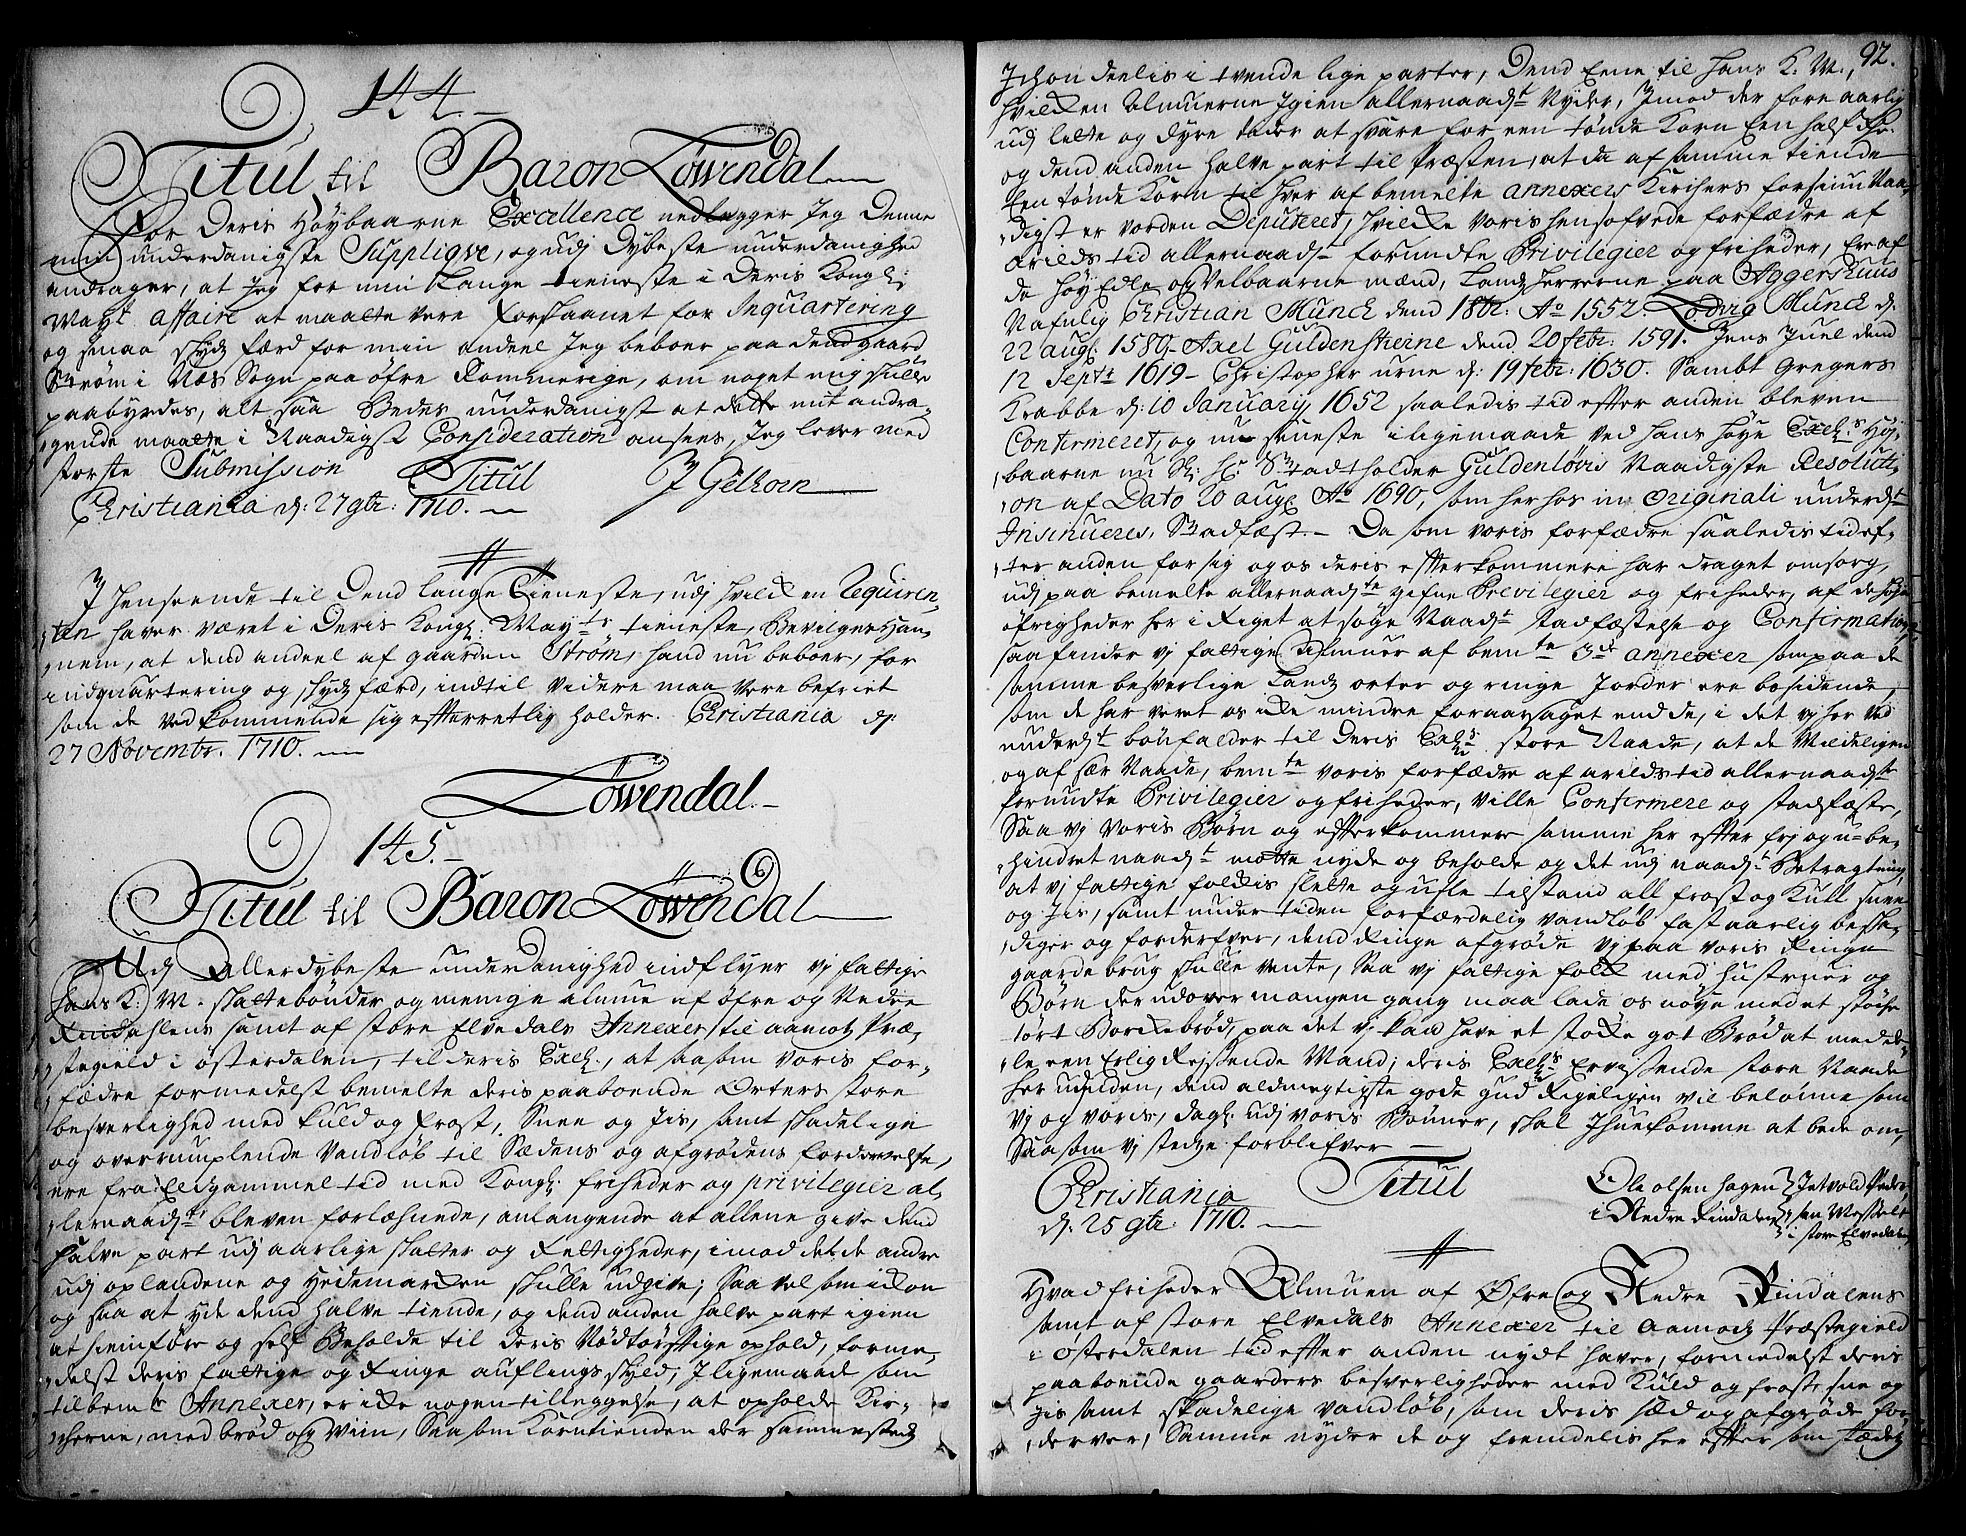 144.
Titul til Baron Löwendal
For Deris Höybaarne Excellence nedlegger Jeg Denne
min underdanigste Supplique, og udj dybeste underdanighed
andrager, at Jeg for min lange tieneste i Deris Kongl:
Mayt affaire at maatte vere forskaanet for Inquartering
og smaa skydz færd for min andeel Jeg beboer paa dend gaard
Ström i Næs Sogn paa öfre Rommerige, om noget mig skulle
paabyrdes, alt saa Bedes underdanigst at dette mit andra-
gende maatte i Naadigst Consideration ansees, Jeg lever med
störste Submission Titul J Gelhorn
Christiania d: 27 9br: 1710.
J henseende til Dend lange Tieneste, udj hvilken Requiren-
ten haver været i Deris Kongl: Maytz tieneste, Bevilges Han-
nem, at dend andeel af gaarden Ström, hand nu beboer, for
indquartering og skydz færd, indtil videre maa vere befriet
som de ved kommende sig efterretlig holder. Christiania d:
27 Novembr. 1710.
Löwendal.
145.
Titul til Baron Löwendal
Udj Allerdybeste underdanighed indflyer vj fattige
hans K: M. skattebönder og menige almue af öfre og Nedre
Rindahlens samt af store Elvedals Annexer til aamotz Præ-
stegield i österdalen, til deris Excell:, at saasom voris for-
fædre formedelst bemelte deris paaboende Orters store
besverlighed med kuld og frost, Snee og Jis, samt skadelige
og overrumplende vandlöb til Sædens og afgrödens fordervelse,
ere fra Eldgammel tid med Kongl: friheder og privilegier al-
lernaadste bleven forlæhnede, anlangende at allene give dend
halve part udj aarlige skatter og Rettigheder, imod det de andre
udj oplandene og Hedemarcken skulle udgive; Saa vel som icke
og saa at yde dend halve tiende, og dend anden halve part igien
at hiemföre og self Beholde til deris Nödtörftige ophold, forme-
delst deris fattige og Ringe auflings skyld, J ligemaade som
til bemte Annexer, er icke nogen tilleggelse, at opholde Kir-
cherne, med bröd og Viin, Saa som Korntienden der sammestedz
92.
Jchon deelis i tvende lige parter, Dend Eene til hans K. M.,
hvilcken Almuerne Jgien allernaadt Nyder, Jmod der fore aarlig
udj lette og dyre tider at svare for een tönde Korn Een half rdr:
og dend anden halve part til Præsten, at da af samme tiende
Een tönde Korn til hver af bemelte annexers Kirchers forsiun Naa-
digst er vorden Deputeret, hvilcke voris hensofvede forfædre af
Arilds tid allernaadt forundte Privilegier og friheder, Er af
de höyEdle og Velbaarne mænd, Landz herrerne paa Aggershuus
Nafnlig Christian Munck dend 18br: Ao 1552. Lodvig Munck d.
22 augl 1589. Axel Güldenstierne dend 20 febr: 1591. Jens Juel dend
12 Septr 1619. Christopher urne d: 19 febr: 1630. Sambt Gregers
Krabbe d: 10 January 1652 saaledis tid efter anden bleven
Confirmeret, og nu seeneste i ligemaade ved hans höye Excell:s Höy-
baarne nu Sl: Hr Stadtholder Güldenlövis Naadigste Resoluti-
on af Dato 20 augl Ao 1690, som herhos in Originali underdt
Insinueres, Stadfæst. Da som voris forfædre saaledis tid ef-
ter anden for sig og os deris efterkommere har draget omsorg,
udj paa bemelte allernaadste gifne Previlegier og friheder, af de höye
öfrigheder her i Riget at söge Naadt stadfæstelse og Confirmation,
saa finder vj fattige Almuer af bemte 3de annexer som paa de
samme besverlige Landz orter og ringe Jorder ere bosidende,
som de har veret os icke mindre foraarsaget end de, i det vj her ved
underdt bönfalder til Deris Excell:s store Naade, at de Mildeligen
og af sær Naade, bemte voris forfædre af arilds tid allernaadste
forundte Privilegier og friheder, ville Confirmere og stadfæste,
Saa vj voris Börn og efterkommere samme her efter frj og u-be-
hindret naadt motte nyde og beholde og det udj naadt Betragtning
at vj fattige folckis slette og usle tilstand all frost og Kull snee
og Jis, samt under tiden forfærdelig vandlöb fast aarlig beska-
diger og forderfver, dend Ringe afgröde vj paa voris Ringe
gaarde brug skulle vente, Saa vj fattige folck med Hustruer og
Börn der udover mangen gang maa lade os nöye med et stöcke
tört Barckebröd, paa det vj kan have et stöcke got Bröd at meddee-
le een Erlig Rejsende Mand; deris Excell:s Ervissende store Naade
her udinden, dend aldmegtigste gode gud Rigeligen vil belönne som
vj og voris, dagl: udj voris Bönner, skal Jhuekomme at bede om,
Saasom vj stedze forblifver
Christiania Titul
d: 25 9br: 1710.
Ole olsen Hagen
i Nedre Rindalen
Jetvold Peder-
sen Messelt
i store Elvedalen
Hvad friheder Almuen af Öfre og Nedre Rindalens
samt af store Elvedals Annexer til Aamotz Præstegield
i Österdalen tid efter anden nydt haver, formedelst deris
paaboende gaarders besverligheder med Kuld og frost, sne og
Jis samt skadelige vandlöb, som deris sæd og afgröde for-
derver, Samme nyder de og fremdelis her efter som stædtz